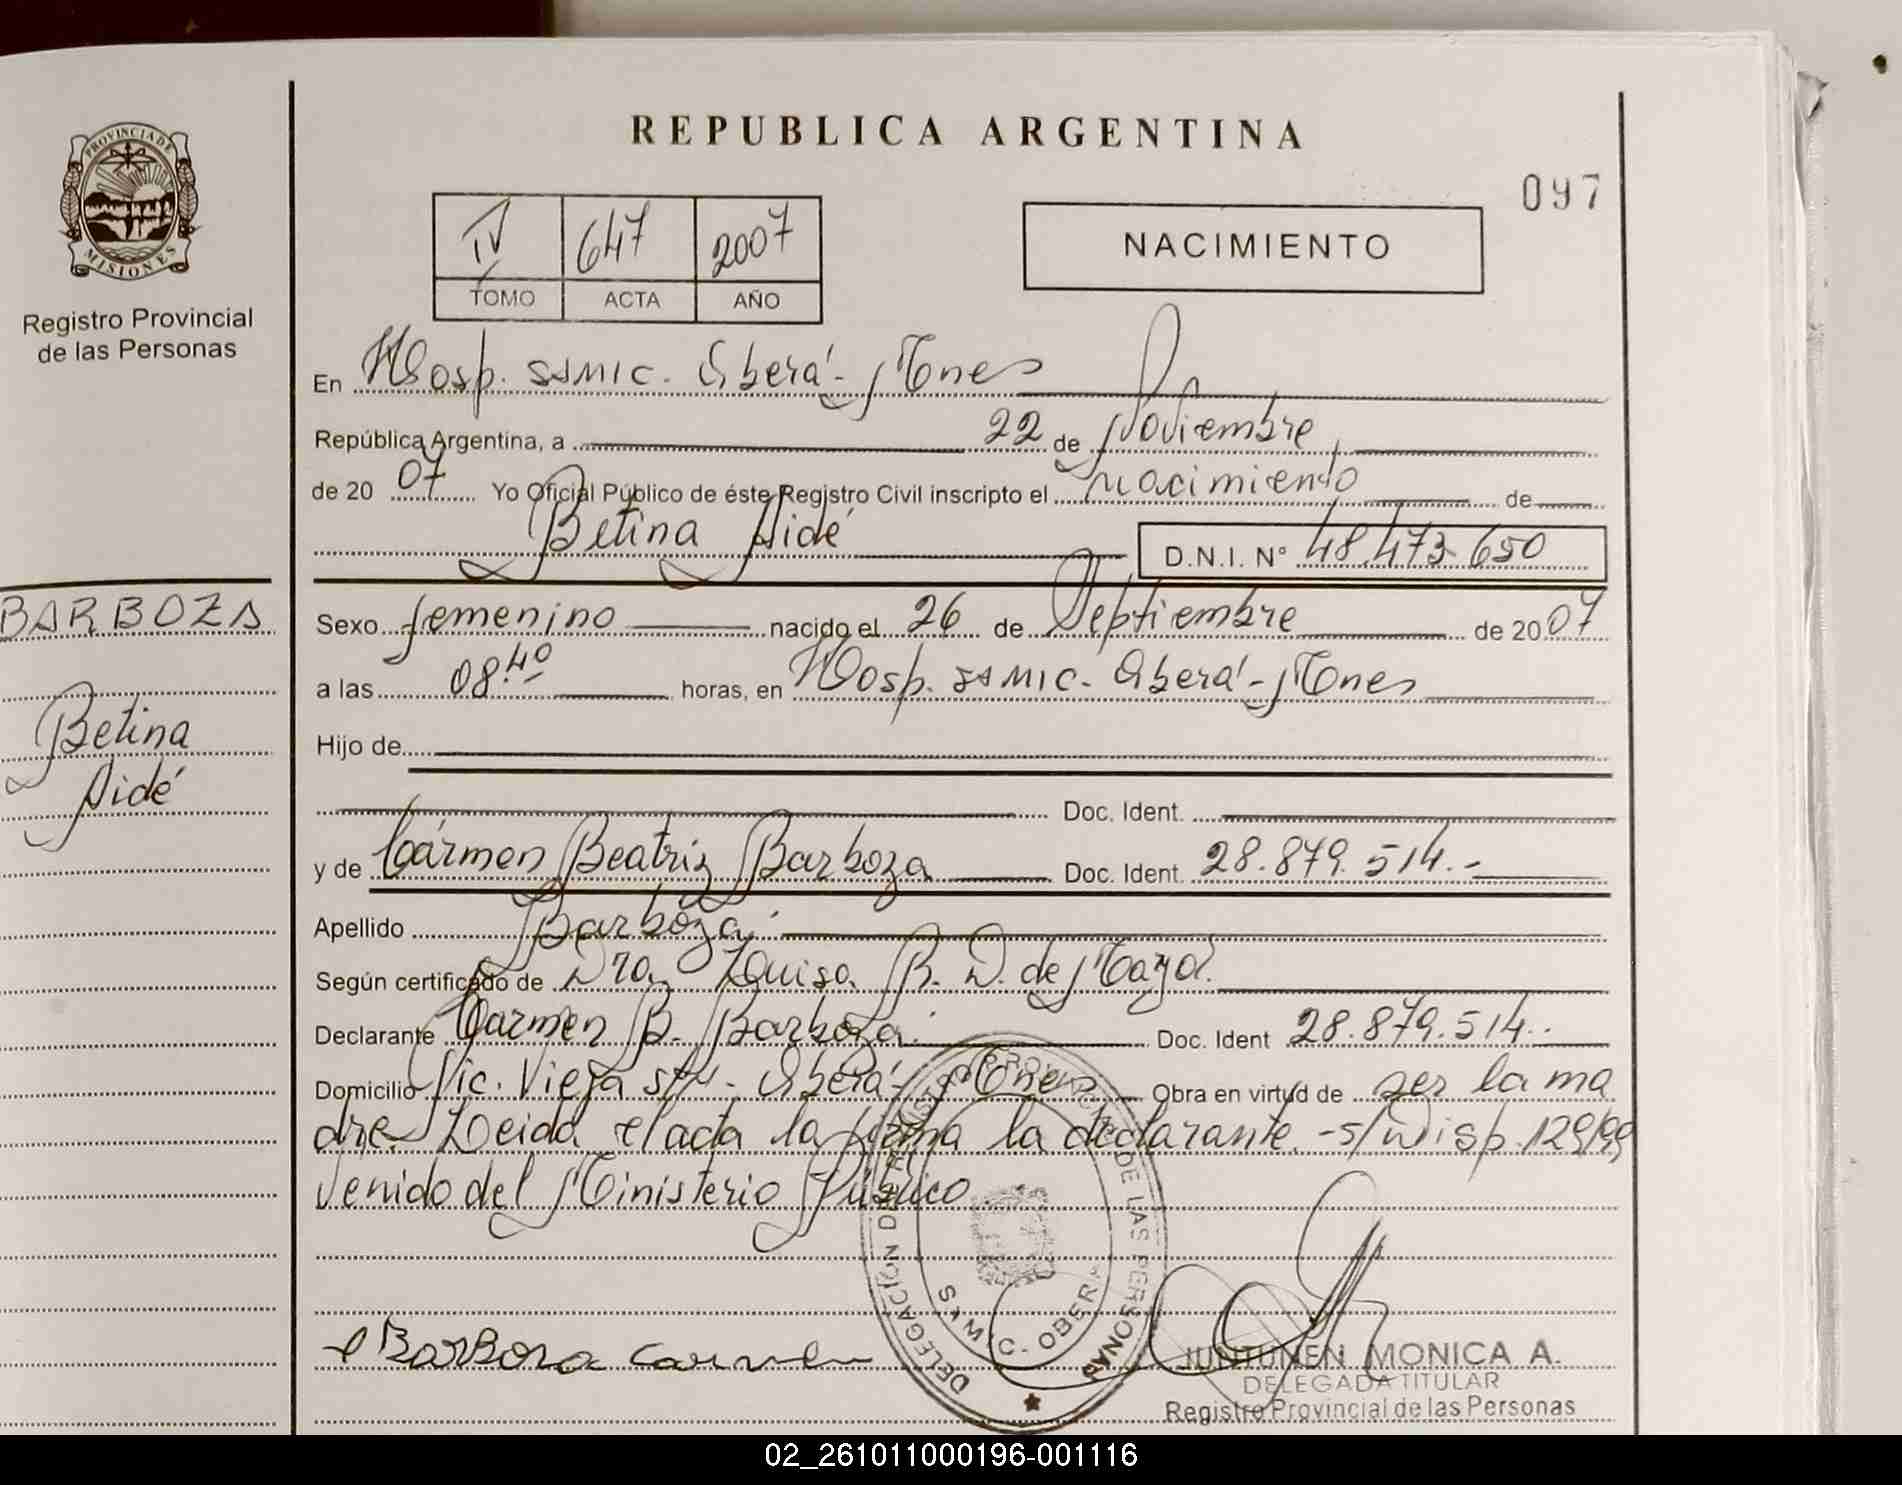 REPUBLICA ARGENTINA
097
PROVINCIA DE
MISIONES
Registro Provincial
de las Personas
IV 647 2007
TOMO ACTA AÑO
NACIMIENTO
En Hosp. SAMIC. Oberá - Mnes
República Argentina, a 22 de Noviembre
de 20 07 Yo Oficial Público de éste Registro Civil inscripto el nacimiento de
Betina Aidé D.N.I. Nº 48.473.650
BARBOZA
Betina
Aidé
Sexo femenino nacido el 26 de Septiembre de 20 07
a las 08 40 horas, en Hosp. SAMIC. Oberá - Mnes
Hijo de
Doc. Ident.
y de Cármen Beatriz Barboza Doc. Ident. 28.879.514.-
Apellido Barboza.
Según certificado de Dra. Luisa R. D. de Mayol.
Declarante Carmen B. Barboza. Doc. Ident 28.879.514.
Domicilio Pic. Vieja s/n - Oberá - Mnes Obra en virtud de ser la ma
dre. Leida el acta la firma la declarante. - s/Disp. 129/99
venido del Ministerio Público
Barboza Carmen
DELEGACIÓN DEL REGISTRO PROVINCIAL DE LAS PERSONAS
SAMIC. OBERA
JUNTUNEN MONICA A.
DELEGADA TITULAR
Registro Provincial de las Personas
02_261011000196-001116